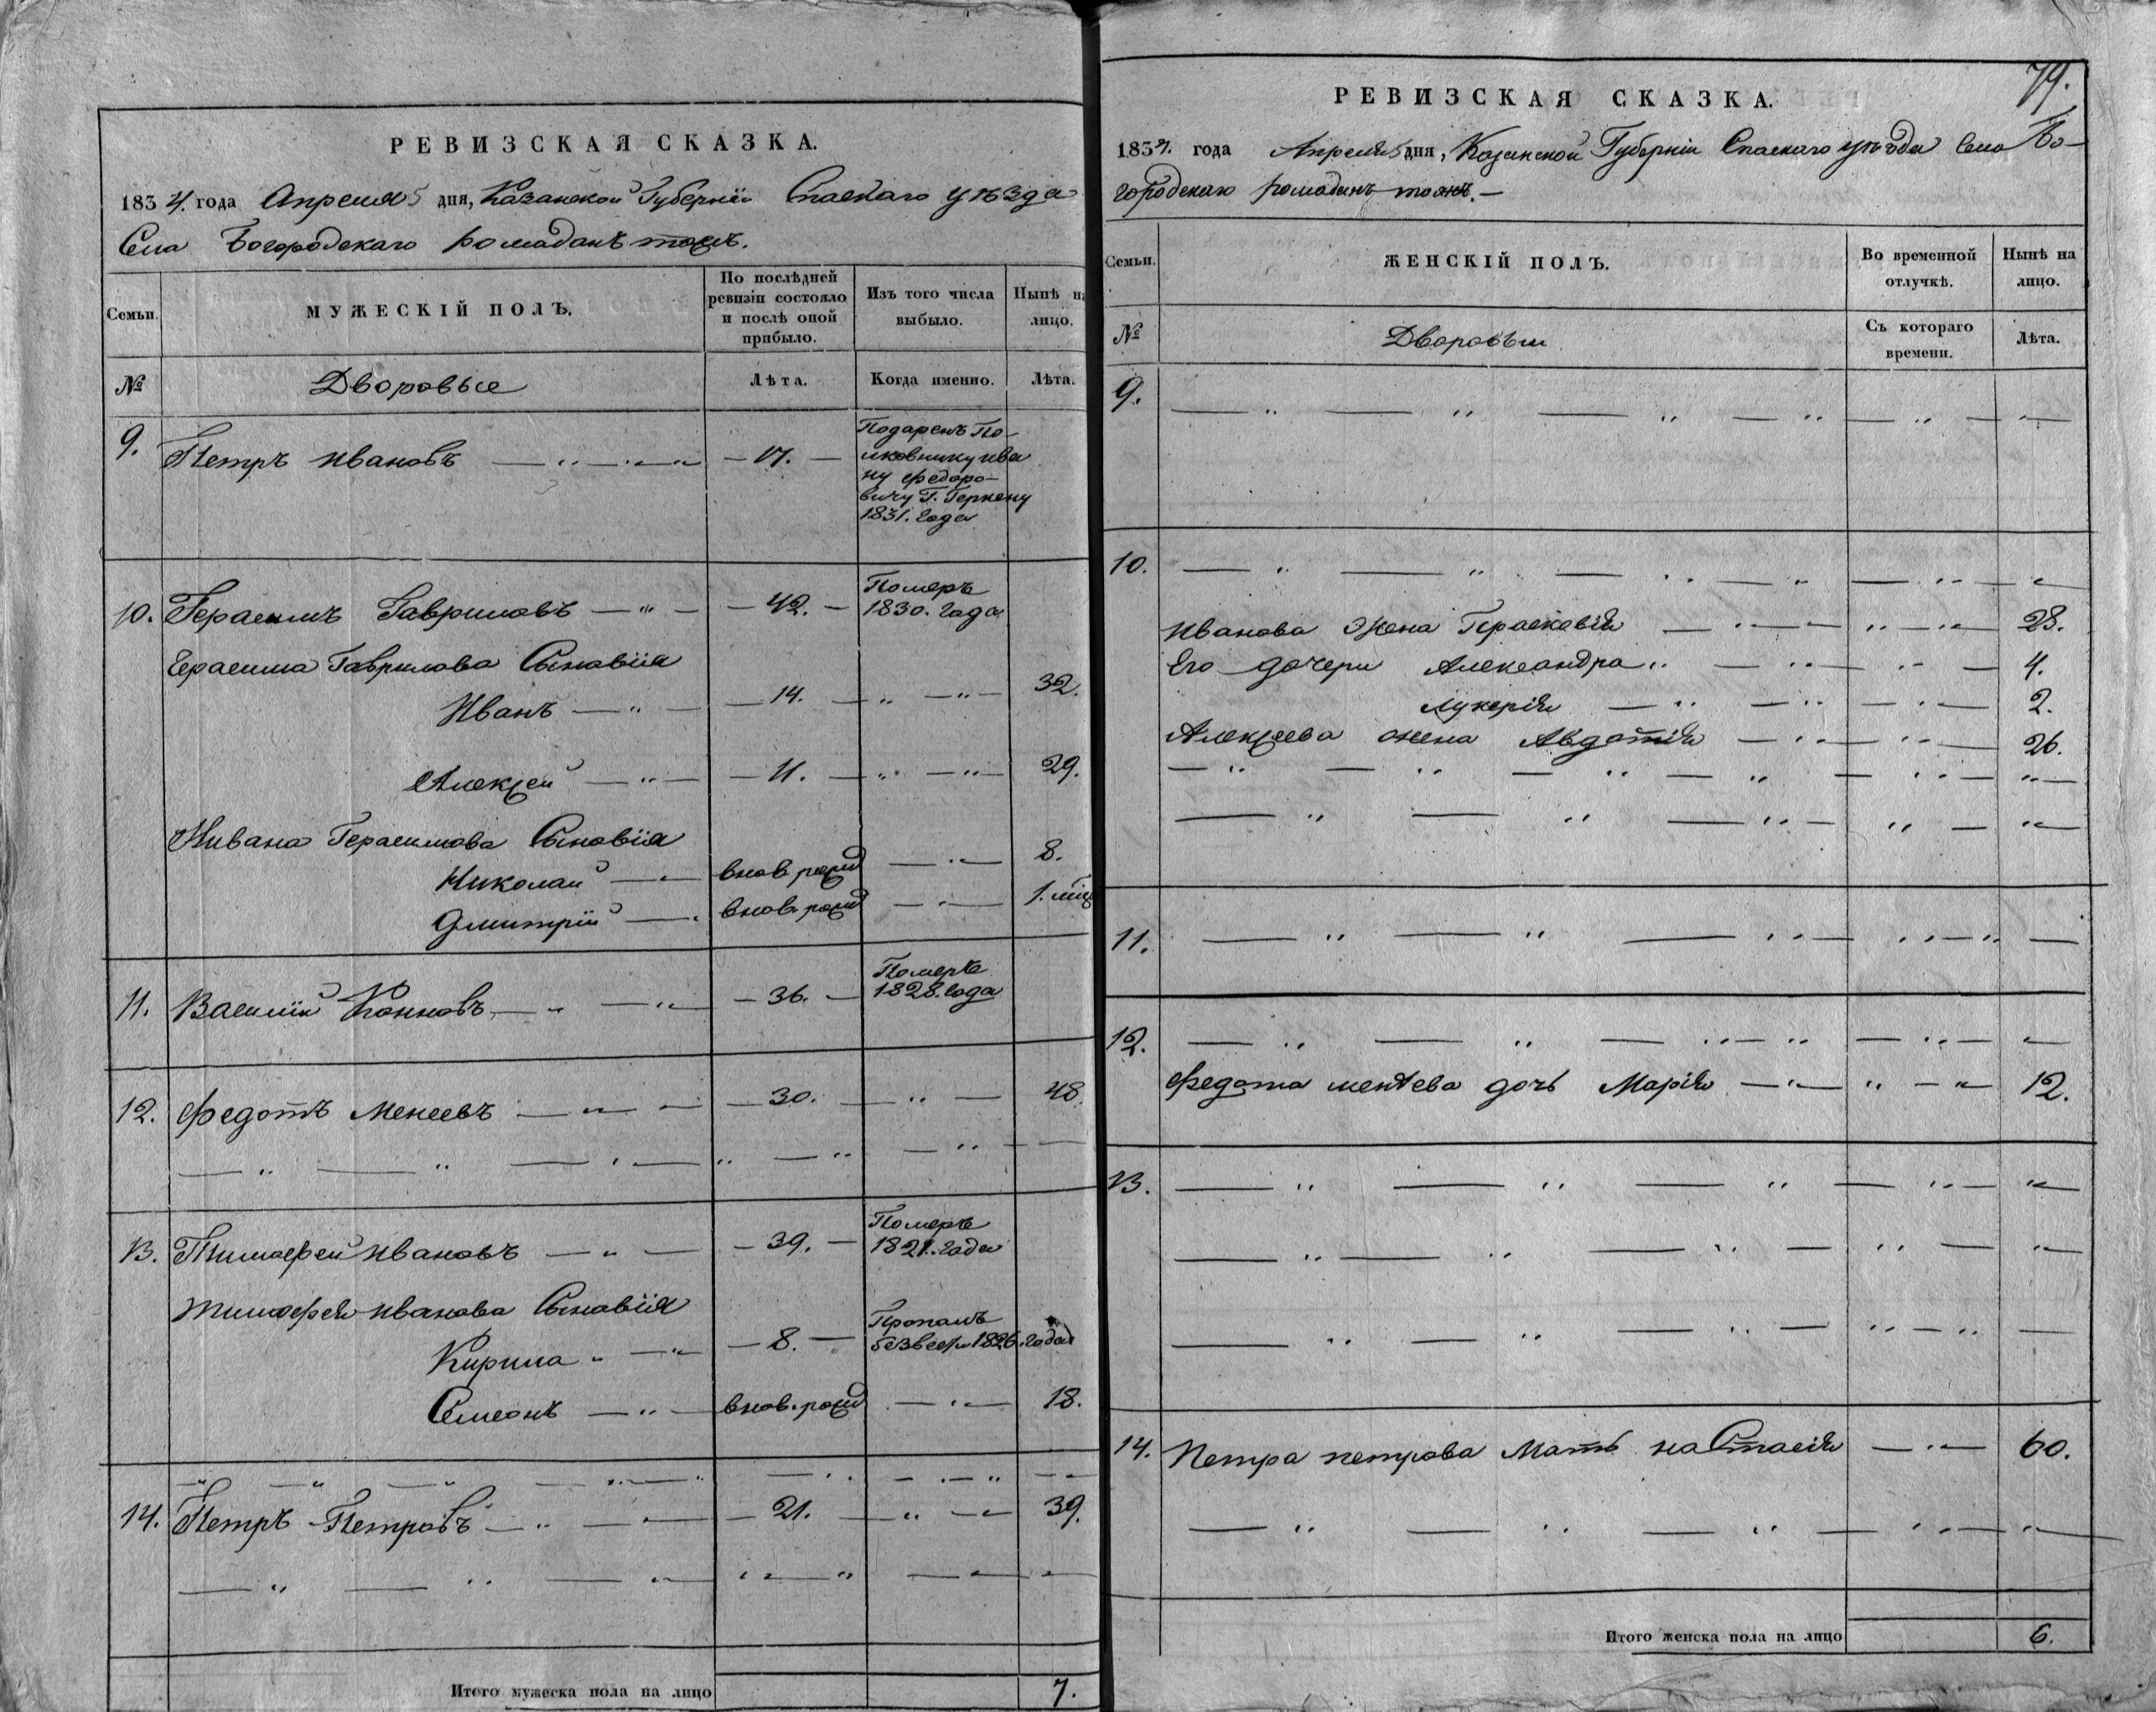 РЕВИЗСКАЯ СКАЗКА.
1834. года Апреля 5 дня, Казанской Губерніи Спаскаго уѣзда
Села Богородскаго ромаданъ тожъ.
Семьи.
МУЖЕСКІЙ ПОЛЪ.
По послѣдней ревизіи состояло и послѣ оной прибыло.
Изъ того числа выбыло.
Нынѣ на лицо.
№
Дворовые
Лѣта.
Когда именно.
Лѣта.
9. Петръ ивановъ — 17. —
Подаренъ По-
лковнику ива
ну федоро-
вичу Г. Геркену
1831. года
10. Герасимъ Гавриловъ — 42. — Померъ
1830. года
Герасима Гаврилова Сыновія
Иванъ — 14. — 32.
Алексей — 11. — 29.
Ивана Герасимова Сыновія
Николай — внов. рожд — 8.
Дмитрій — внов. рожд — 1. мѣц
11. Василій Кононовъ — 36. — Померъ
1828. года
12. Федотъ Менеевъ — 30. — 48.
13. Тимофей ивановъ — 39. — Померъ
1821. года
тимофея иванова Сыновія
Кирила — 8. — Пропалъ
безвести 1826. года
Семенъ — внов. рожд — 18.
14. Петръ Петровъ — 21. — 39.
Итого мужеска пола на лицо 7.
79.
РЕВИЗСКАЯ СКАЗКА.
1834. года Апреля 5 дня, Казанской Губерніи Спаскаго уѣзда Села Бо-
городскаго ромаданъ тожъ.
Семьи.
ЖЕНСКІЙ ПОЛЪ.
Во временной отлучкѣ.
Нынѣ на лицо.
№
Дворовыи
Съ котораго времени.
Лѣта.
9.
10.
Иванова жена Прасковія — 28.
Его дочери Александра — 4.
Лукерія — 2.
Алексеева жена Авдотія — 26.
11.
12.
Федота Менеева дочь Марія — 12.
13.
14. Петра петрова Мать наСтасія — 60.
Итого женска пола на лицо 6.